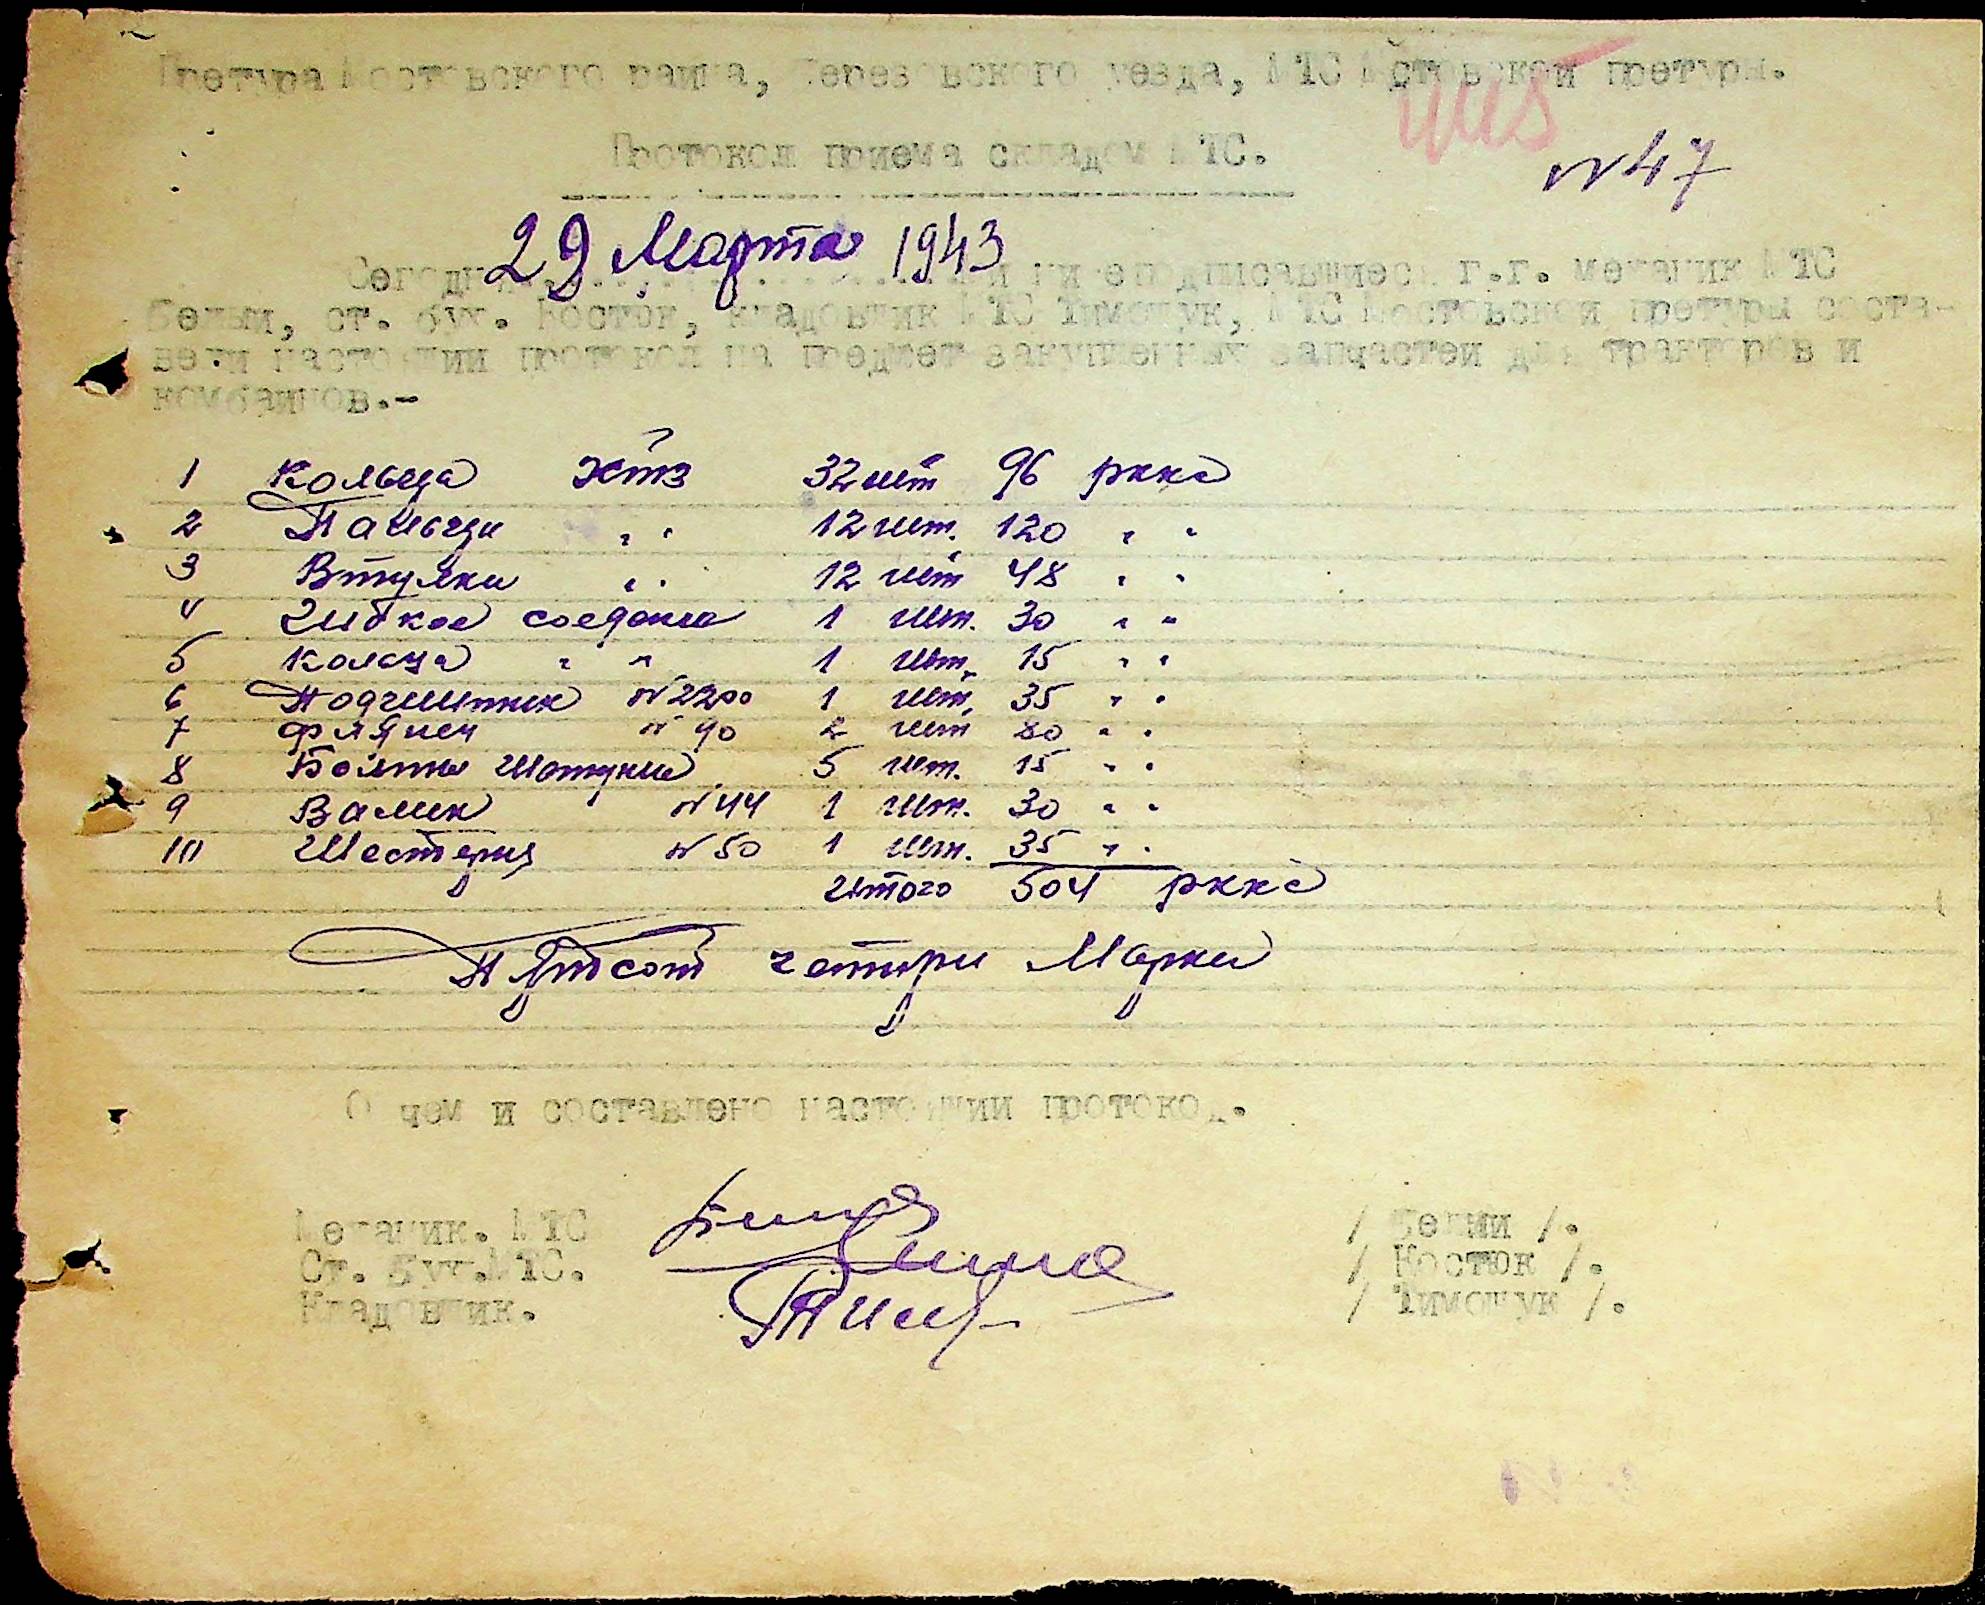 Претура Мостовского раиона, Березовского уезда, МТС Мостовскои претуры.
Протокол приема складом МТС.
№ 47
29 Марта 1943
Сегодня нижеподписавшиеся г.г. механик МТС
Белыи, ст. бух. Костюк, кладовщик МТС Тимощук, МТС Мостовскои претуры соста-
вели настоящии протокол на предмет закупленных запчастеи для тракторов и
комбаинов.-
1 Кольца ХТЗ 32 шт 96 рккс
2 Пальцы " " 12 шт. 120 " "
3 Втулки " " 12 шт 48 " "
4 Гибкое 1 шт. 30 " "
5 Кольца " " 1 шт. 15 " "
6 Подшипник № 2200 1 шт. 35 " "
7 Флянец № 90 2 шт 80 " "
8 Болты Шатуние 5 шт. 15 " "
9 Валик № 44 1 шт. 30 " "
10 Шестерня № 50 1 шт. 35 " "
Итого 504 рккс
Пятсот четыри Марки
О чем и составлено настоящии протокол.
Механик. МТС / Белыи /.
Ст. Бух. МТС. / Костюк /.
Кладовщик. / Тимощук /.